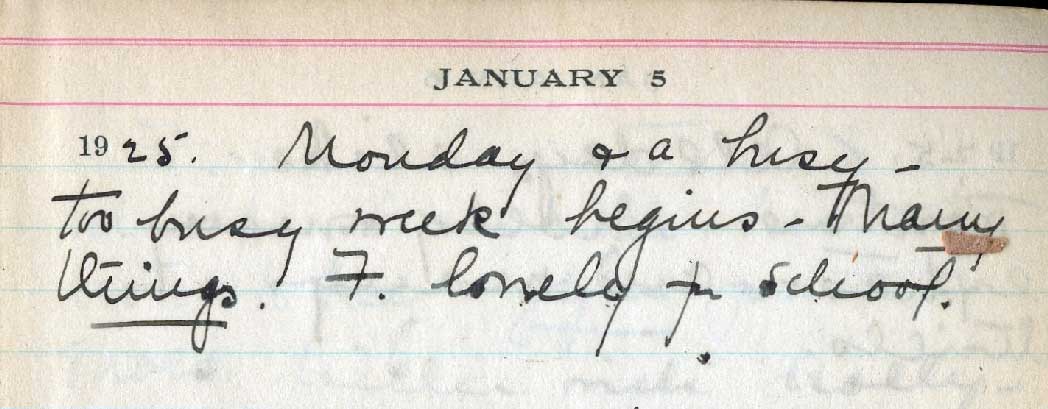 JANUARY 5
1925. Monday & a busy -
too busy week begins - Many
things. F. lonely for school.